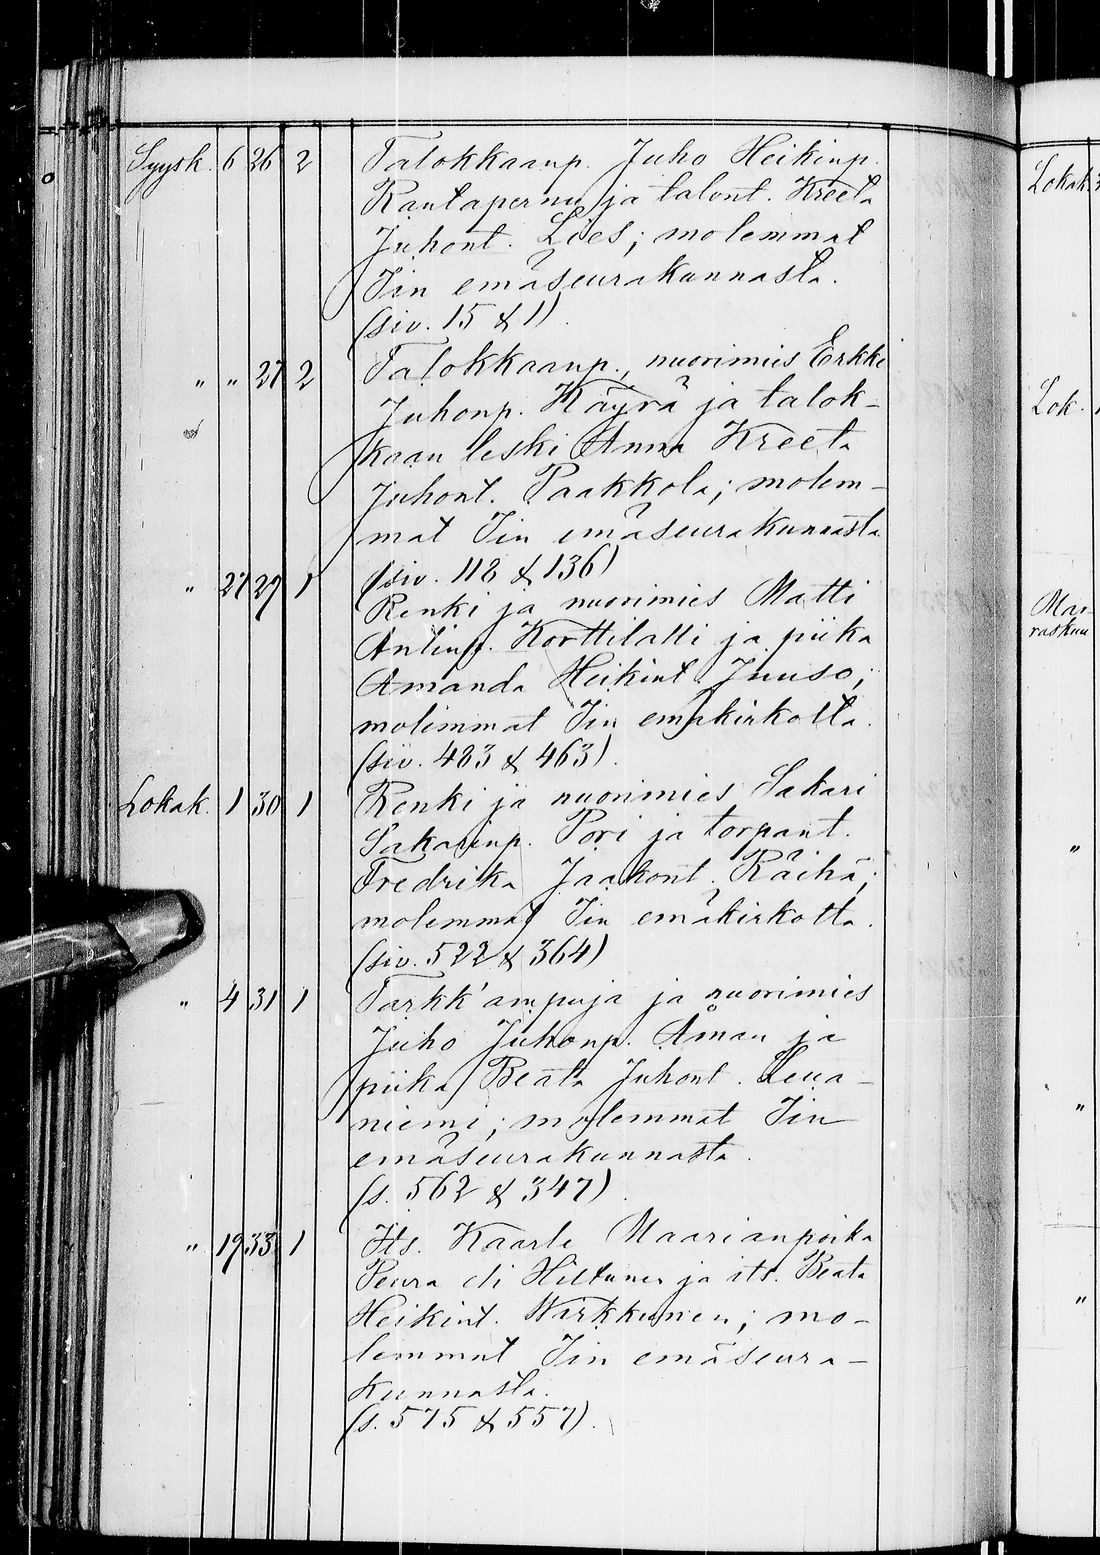 Syysk. 6 26 2 Talokkaanp. Juho Heikinp.
Rautapernu ja talont. Kreeta
Juhont. Lies; molemmat
Iin emäseurakunnasta.
(siv. 15 & 1)
" " 27 2 Talokkaanp., nuorimies Erkki
Juhonp. Käyrä ja talok-
kaan leski Anna Kreeta
Juhont. Paakkola; molem-
mat Iin emäseurakunnasta
(siv. 118 & 136)
" 27 29 1 Renki ja nuorimies Matti
Antinp. Korttilatti ja piika
Amanda Heikint. Juuso;
molemmat Iin emäkirkolta.
(siv. 483 & 463).
Lokak. 1 30 1 Renki ja nuorimies Sakari
Sakarinp. Pori ja torpant.
Fredrika Jaakont. Räihä;
molemmat Iin emäkirkolta.
(siv. 522 & 364)
" 4 31 1 Tarkk'ampuja ja nuorimies
Juho Juhonp. Åman ja
piika Beata Juhont. Leua-
niemi; molemmat Iin
emäseurakunnasta.
(s. 562 & 347)
" 19 33 1 Its. Kaarle Maarianpoika
Peura eli Hiltunen ja its. Beata
Heikint. Warkkuinen; mo-
lemmat Iin emäseura-
kunnasta.
(s. 575 & 557).
Lokak.
Lok.
Mar-
raskuu
"
"
"